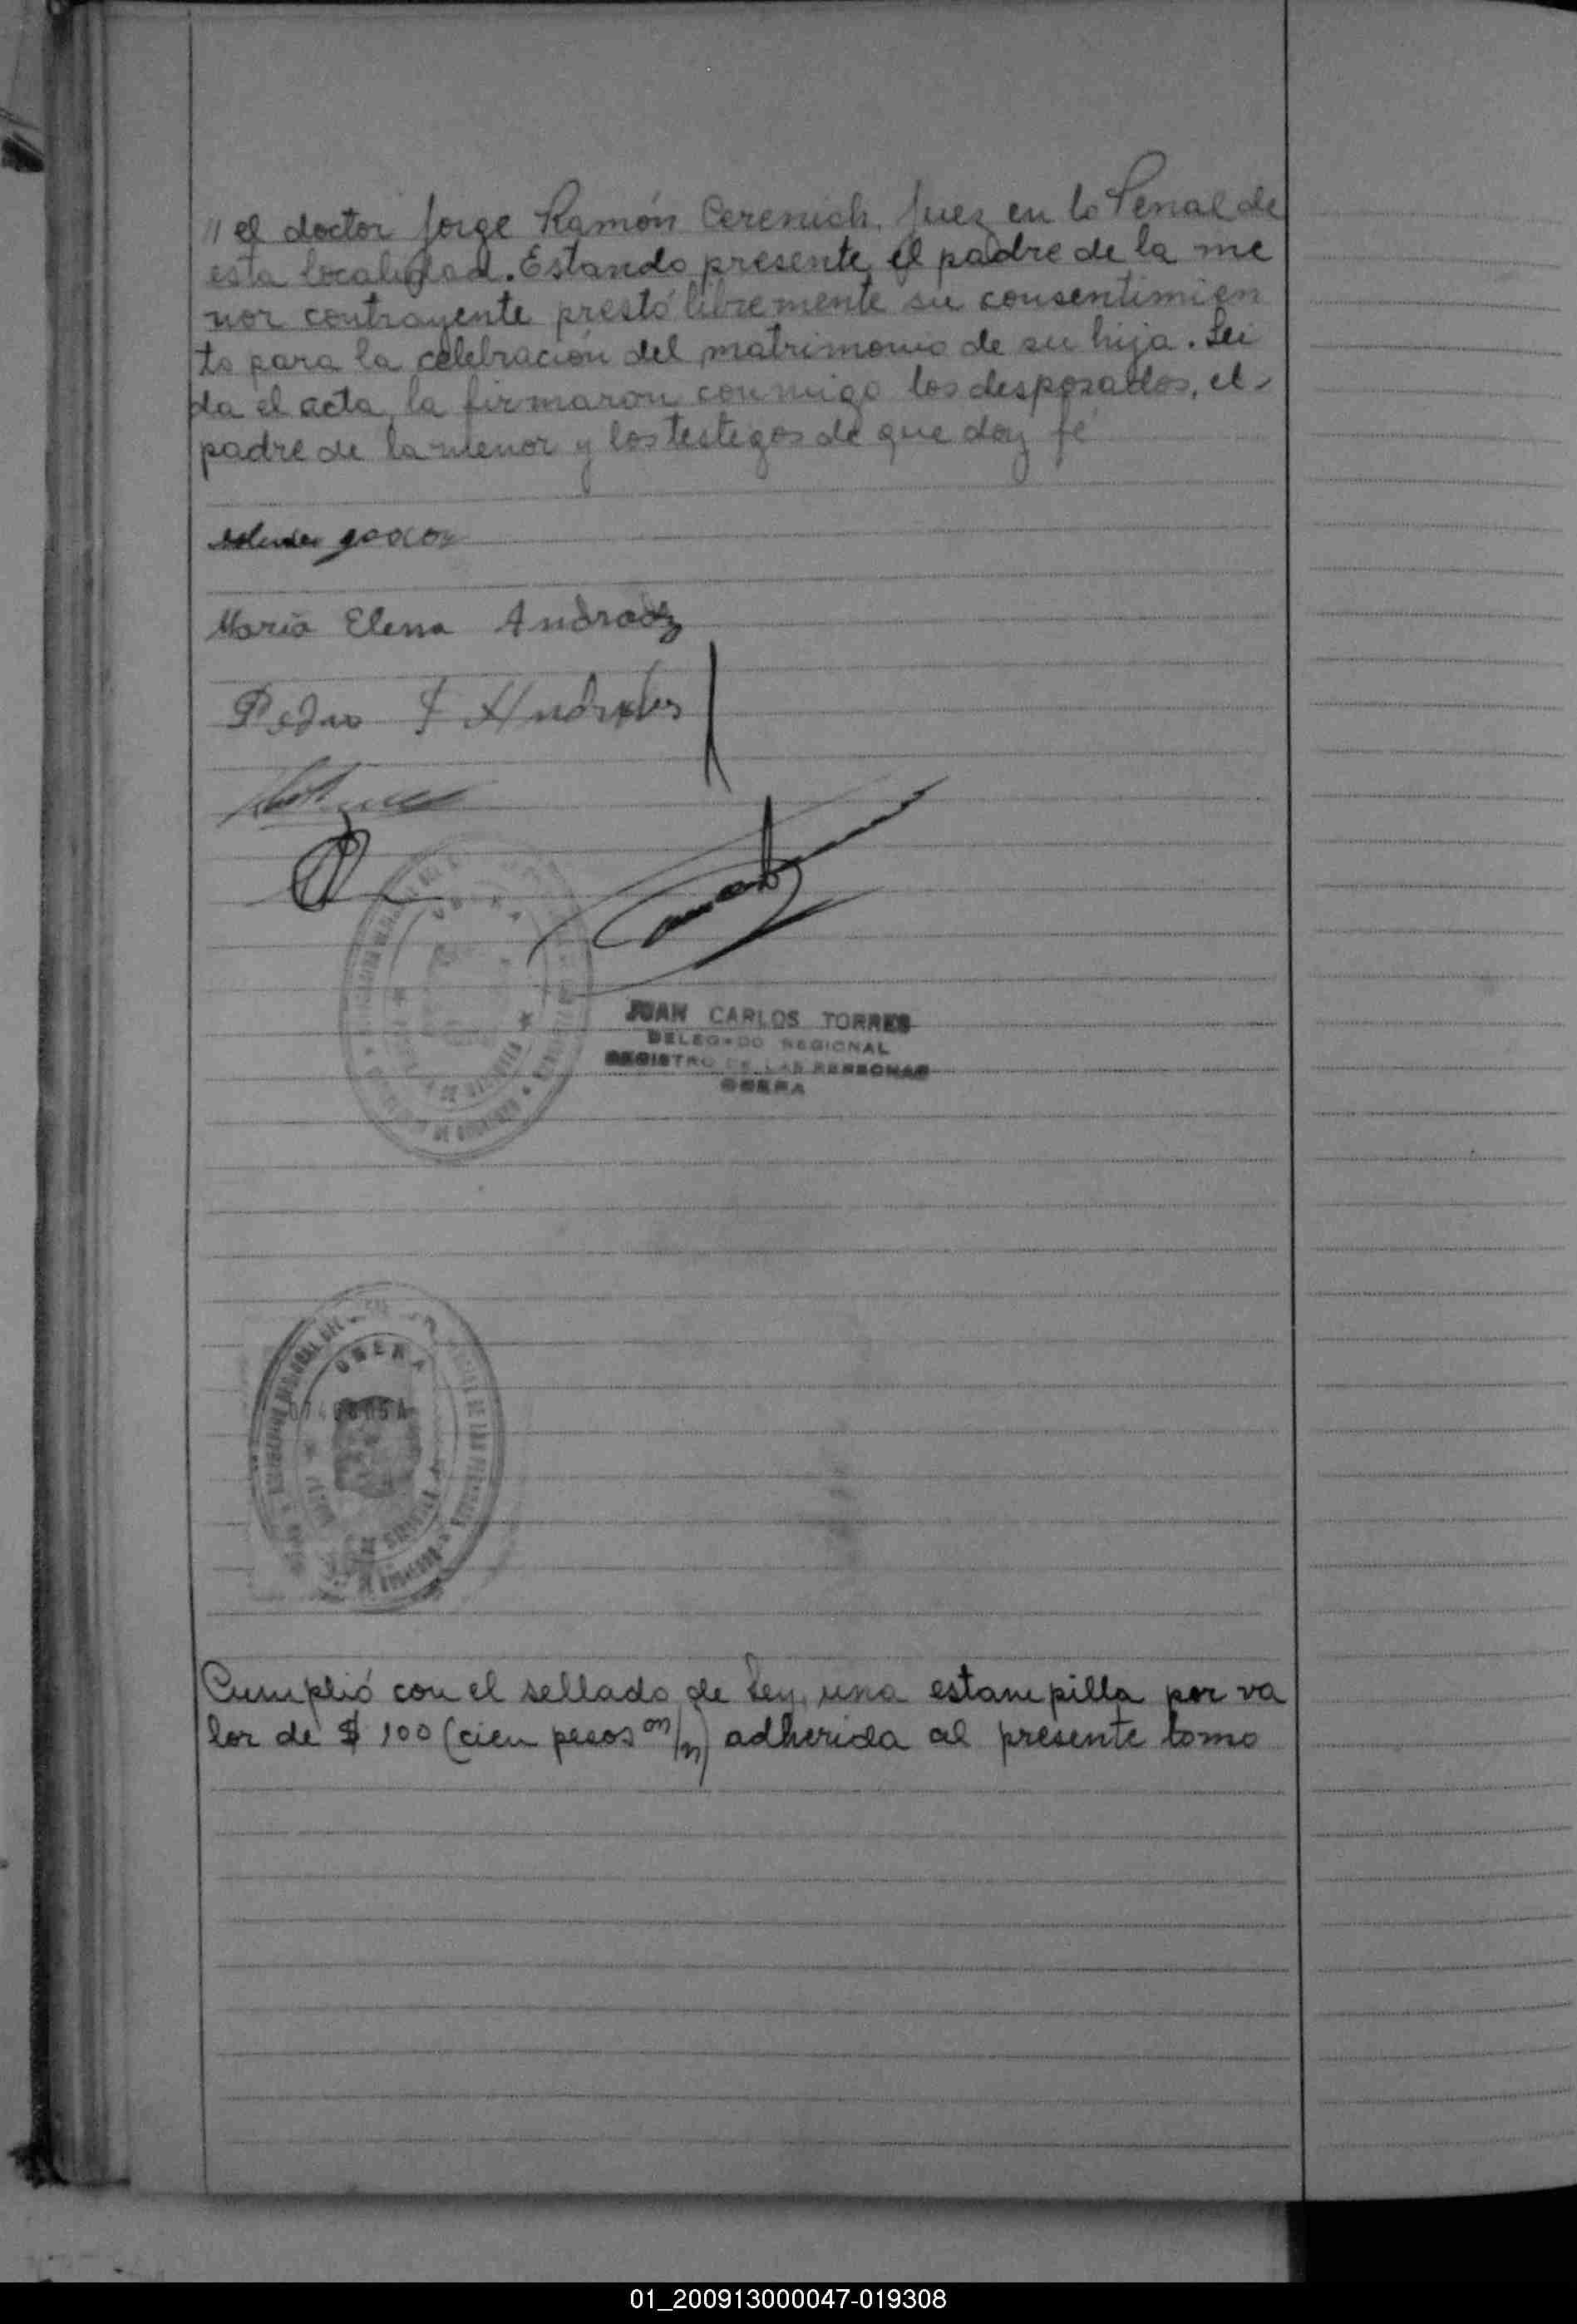 // el doctor Jorge Ramón Cerenich, Juez en lo Penal de
esta localidad. Estando presente el padre de la me
nor contrayente prestó libremente su consentimien
to para la celebración del matrimonio de su hija. Lei
da el acta, la firmaron conmigo los desposados, el
padre de la menor y los testigos de que doy fé
Maria Elena Andradez
Pedro
JUAN CARLOS TORRES
DELEGADO REGIONAL
REGISTRO DE LAS PERSONAS
OBERA
OBERA
Cumplió con el sellado de Ley, una estampilla por va
lor de $ 100 (cien pesos m/n) adherida al presente tomo
01_200913000047-019308